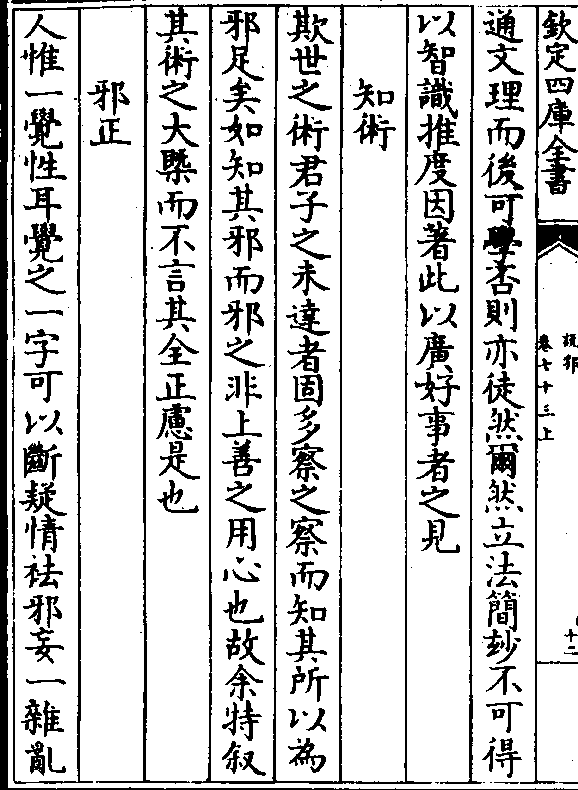 欽定四庫全書
說郛
卷七十三上
十二
通文理而後可學否則亦徒然爾然立法簡妙不可得
以智識推度因著此以廣好事者之見
知術
欺世之術君子之未達者固多察之察而知其所以為
邪足矣如知其邪而邪之非上善之用心也故余特叙
其術之大槩而不言其全正慮是也
邪正
人惟一覺性耳覺之一字可以斷疑情祛邪妄一雜亂